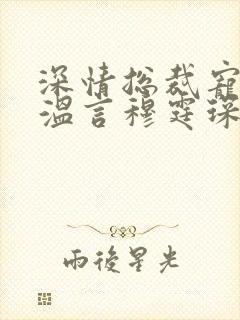 深情总裁宠
温言穆霆琛
雨後星光